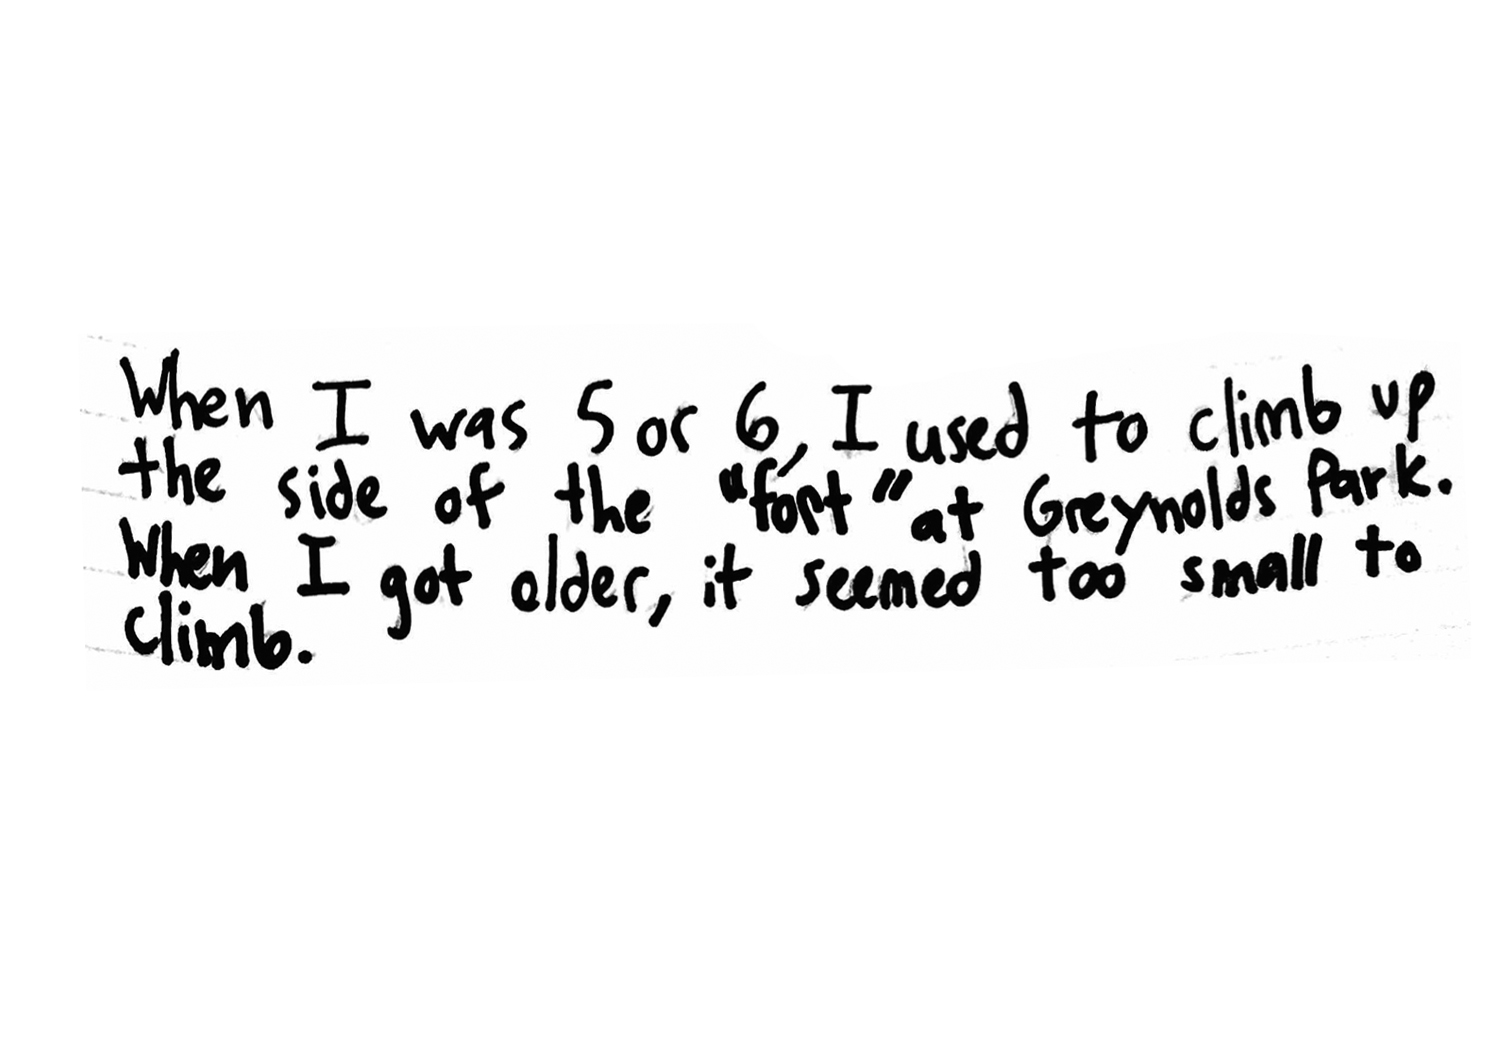 When I was 5 or 6, I used to climb up
the side of the "fort" at Greynolds Park.
When I got older, it seemed too small to
climb.